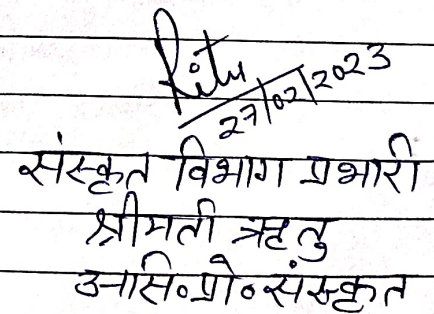 Ritu
27/02/2023
संस्कृत विभाग प्रभारी
श्रीमती ऋतु
असि॰प्रो॰संस्कृत